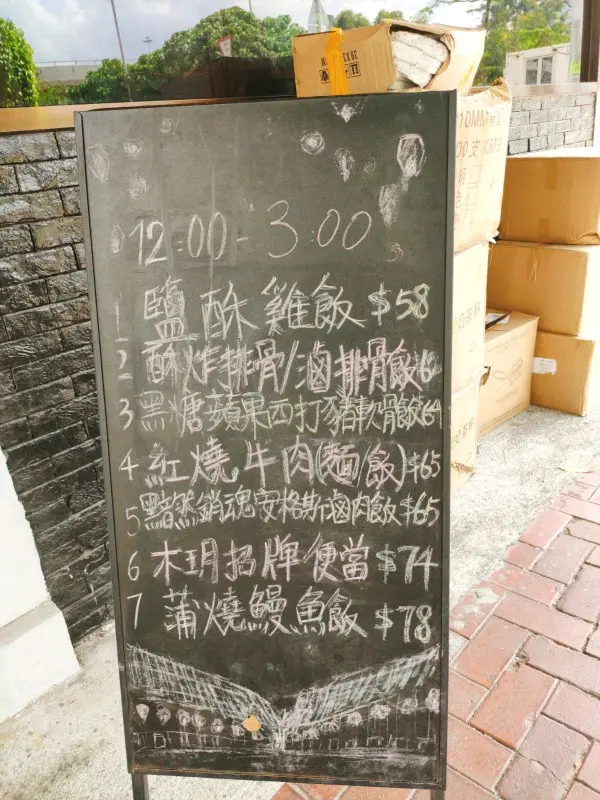 12:00-3:00
1 鹽酥雞飯 $58
2 酥炸排骨/滷排骨飯
3 黑糖蘋果西打豬軟骨飯 64
4 紅燒牛肉(麵/飯) $65
5 黯然銷魂安格斯滷肉飯 $65
6 木玥招牌便當 $74
7 蒲燒鰻魚飯 $78
10MM